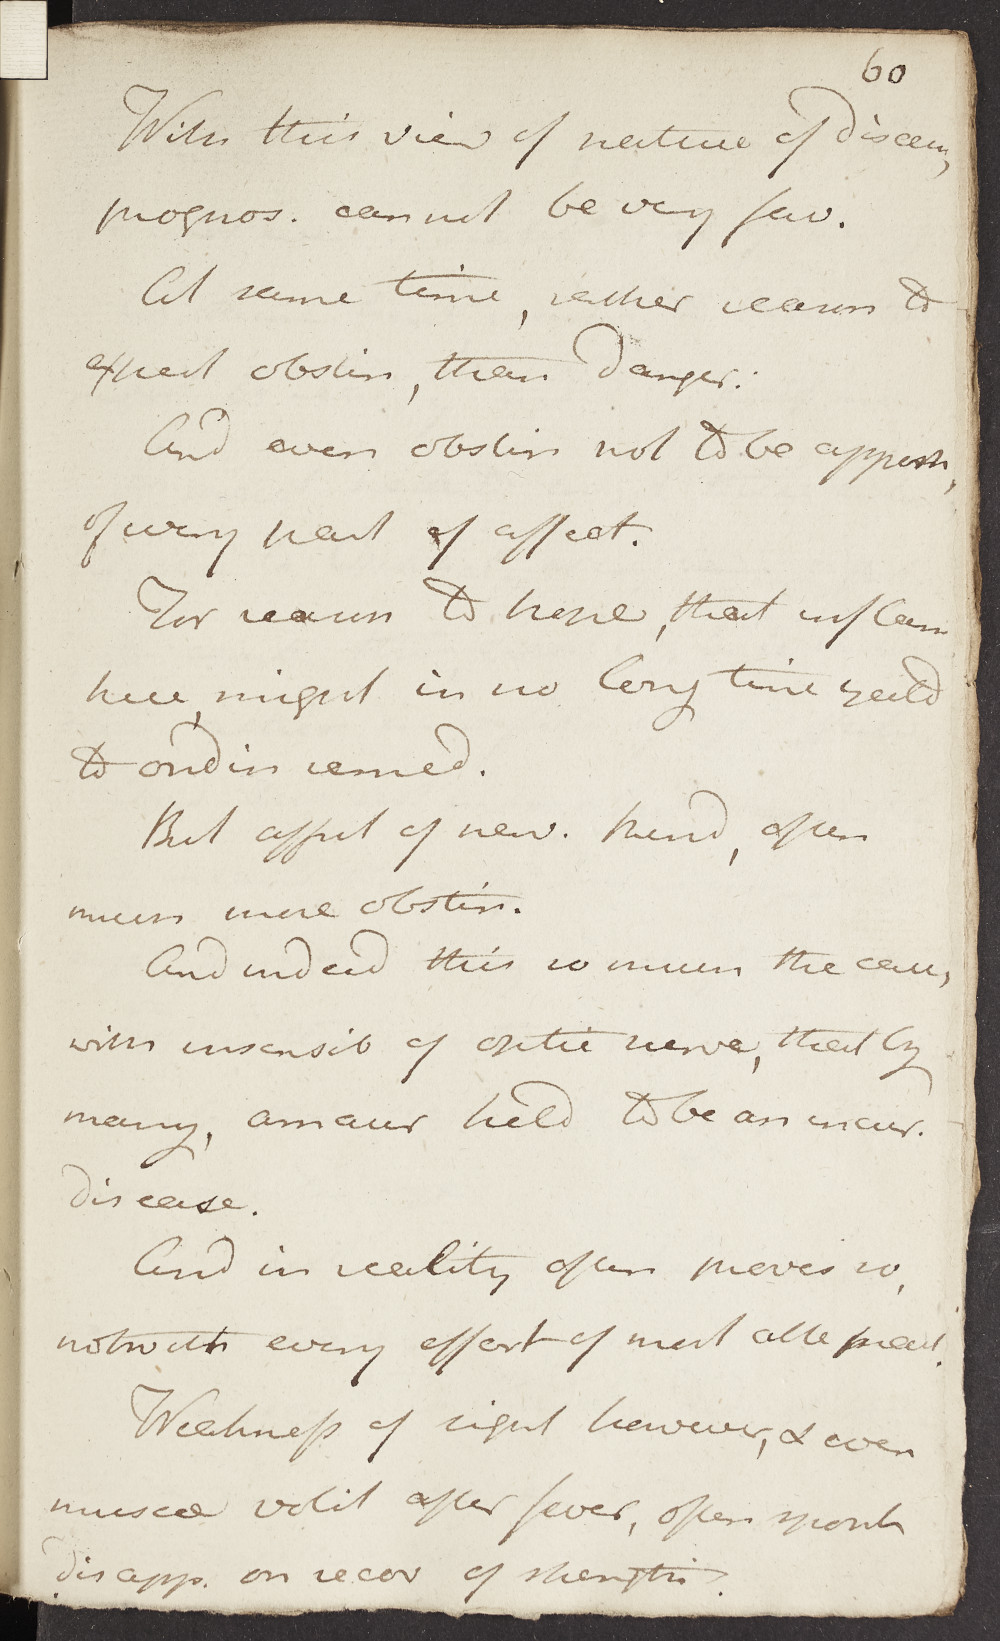 60
With this view of nature of diseas,
prognos. cannot be very fav.
At same time, rather reason to
expect obstin, than danger.
And even obstin not to be appreh,
of every part of affect.
For reason to hope, that inflam
here, might in no long time yeild
to ordin remed.
But affect of nerv. kind, often
much more obstin.
And indeed this so much the case,
with insensib of optic nerve, that by
many, amaur held to be an incur.
disease.
And in reality often proves so,
notwith every effort of most able pract.
Weakness of sight however, & even
muscæ volit after fever, often spont
disapp. on recov of strength.